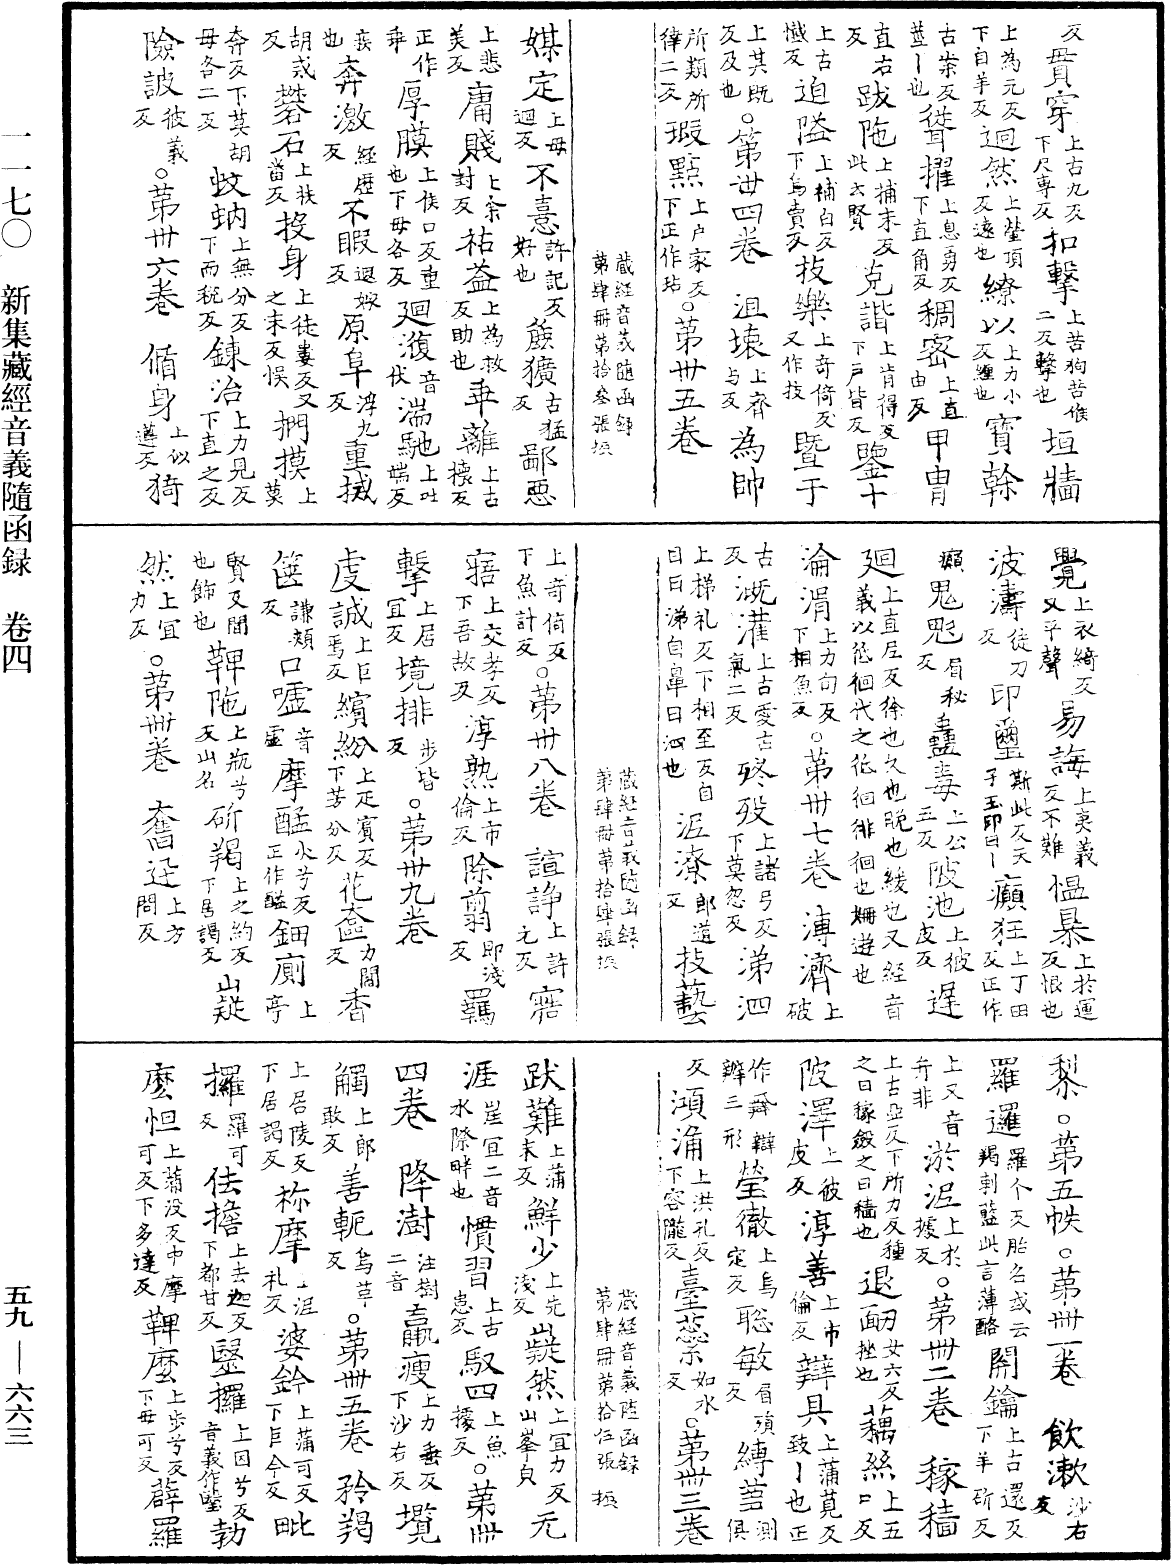 一一七〇　新集藏經音義隨函録　卷四
五九—六六三
反毌貫穿上古九反下尺專反扣擊上苦狗苦候二反擊也垣牆
上為元反下自羊反迥然上瑩頂反遠也繚以上力小反纏也寶幹
古案反蓋—也聳擢上息勇反下直角反稠密上直由反甲冑
直右反跋陁上捕末反此云賢克諧上肯得反下户皆反鑒十
上古懺反迫隘上補白反下烏賣反技樂上奇倚反又作技暨于
上其既反及也。第卅四卷　沮壞上齊与反為帥
所類所律二反瑕點上户家反下正作玷。第卅五卷
藏經音義隨函録第肆冊第拾叁張振
媒定上毋迴反不憙許記反好也麁獷古猛反鄙惡
上悲美反庸賤上余封反祐益上為救反助也乖離上古壞反
正作乖厚膜上侯口反重也下毋各反廻澓音伏湍馳上吐端反
疾也奔激經歷反不暇遐嫁反原阜浮九反重擔
胡或反礬石上扶當反投身上徒婁反又之末反悞捫摸上莫
奔反下莫胡毋各二反蚊蚋上無分反下而税反鍊冶上力見反下直之反
險詖彼義反。第卅六卷　偱身上似遵反猗
覺上衣綺反又平聲易誨上夷義反不難愠暴上於運反恨也
波濤徒刀反印璽斯此反天子玉印曰—癲狂上丁田反正作
癲鬼魅眉秘反蠱毒上公五反陂池上彼皮反遅
廻上直尼反徐也久也晚也緩也又經音義以仾徊代之仾徊徘徊也姍遊也
淪滑上力旬反下相魚反。第卅七卷　漙濟上破
古反溉灌上古愛古氣二反殀歿上諸弓反下莫忽反涕泗
上梯礼反下相至反自目曰涕自鼻曰泗也泥潦郎道反技藝
藏經音義隨函録第肆冊第拾肆張振
上奇倚反下魚計反。第卅八卷　諠諍上許元反寤
寤上交孝反下吾故反淳熟上市倫反除翦即淺反羈
擊上居宜反境排步皆反。第卅九卷
虔誠上巨焉反繽紛上疋賓反下芳分反花奩力閻反香
篋謙頰反口嘘音虛摩醯火兮反正作醯鈿廁上亭
賢反間也飾也鞞陁上瓶兮反山名斫羯上之約反下居謁反山嶷
然上宜力反。第卌卷　奮迅上方問反
梨。第五帙。第卌一卷　飲漱沙右反
羅邏羅个反胎名或云羯剌藍此言薄酪關鑰上古還反下羊斫反
上又音弁非淤泥上於據反。第卌二卷　稼穡
上古亞反下所力反種之曰稼斂之曰穡也退衂女六反面挫也藕絲上五口反
陂澤上彼皮反淳善上市倫反辯具上蒲莧反致—也正
作辦辯辨三形瑩徹上烏定反聡敏眉殞反縛蒭測俱
反澒涌上洪孔反下容隴反臺蘂如水反。第卌三卷
藏經音義隨函録第肆冊第拾伍張振
跋難上蒲末反鮮少上先淺反嶷然上宜力反山峯皃无
涯崖宜二音水際畔也慣習上古患反馭四上魚據反。第卌
四卷　降澍注樹二音羸瘦上力垂反下沙右反壈
觸上郎敢反善軛烏革反。第卌五卷　矜羯
上居陵反下居謁反祢摩上泥礼反婆鈐上蒲可反下巨今反毗
攞羅可反佉擔上去迦反下都甘反壂攞上因兮反音義作瑿勃
麼怛上蒲没反中摩可反下多達反鞞麼上步兮反下毋可反薜羅